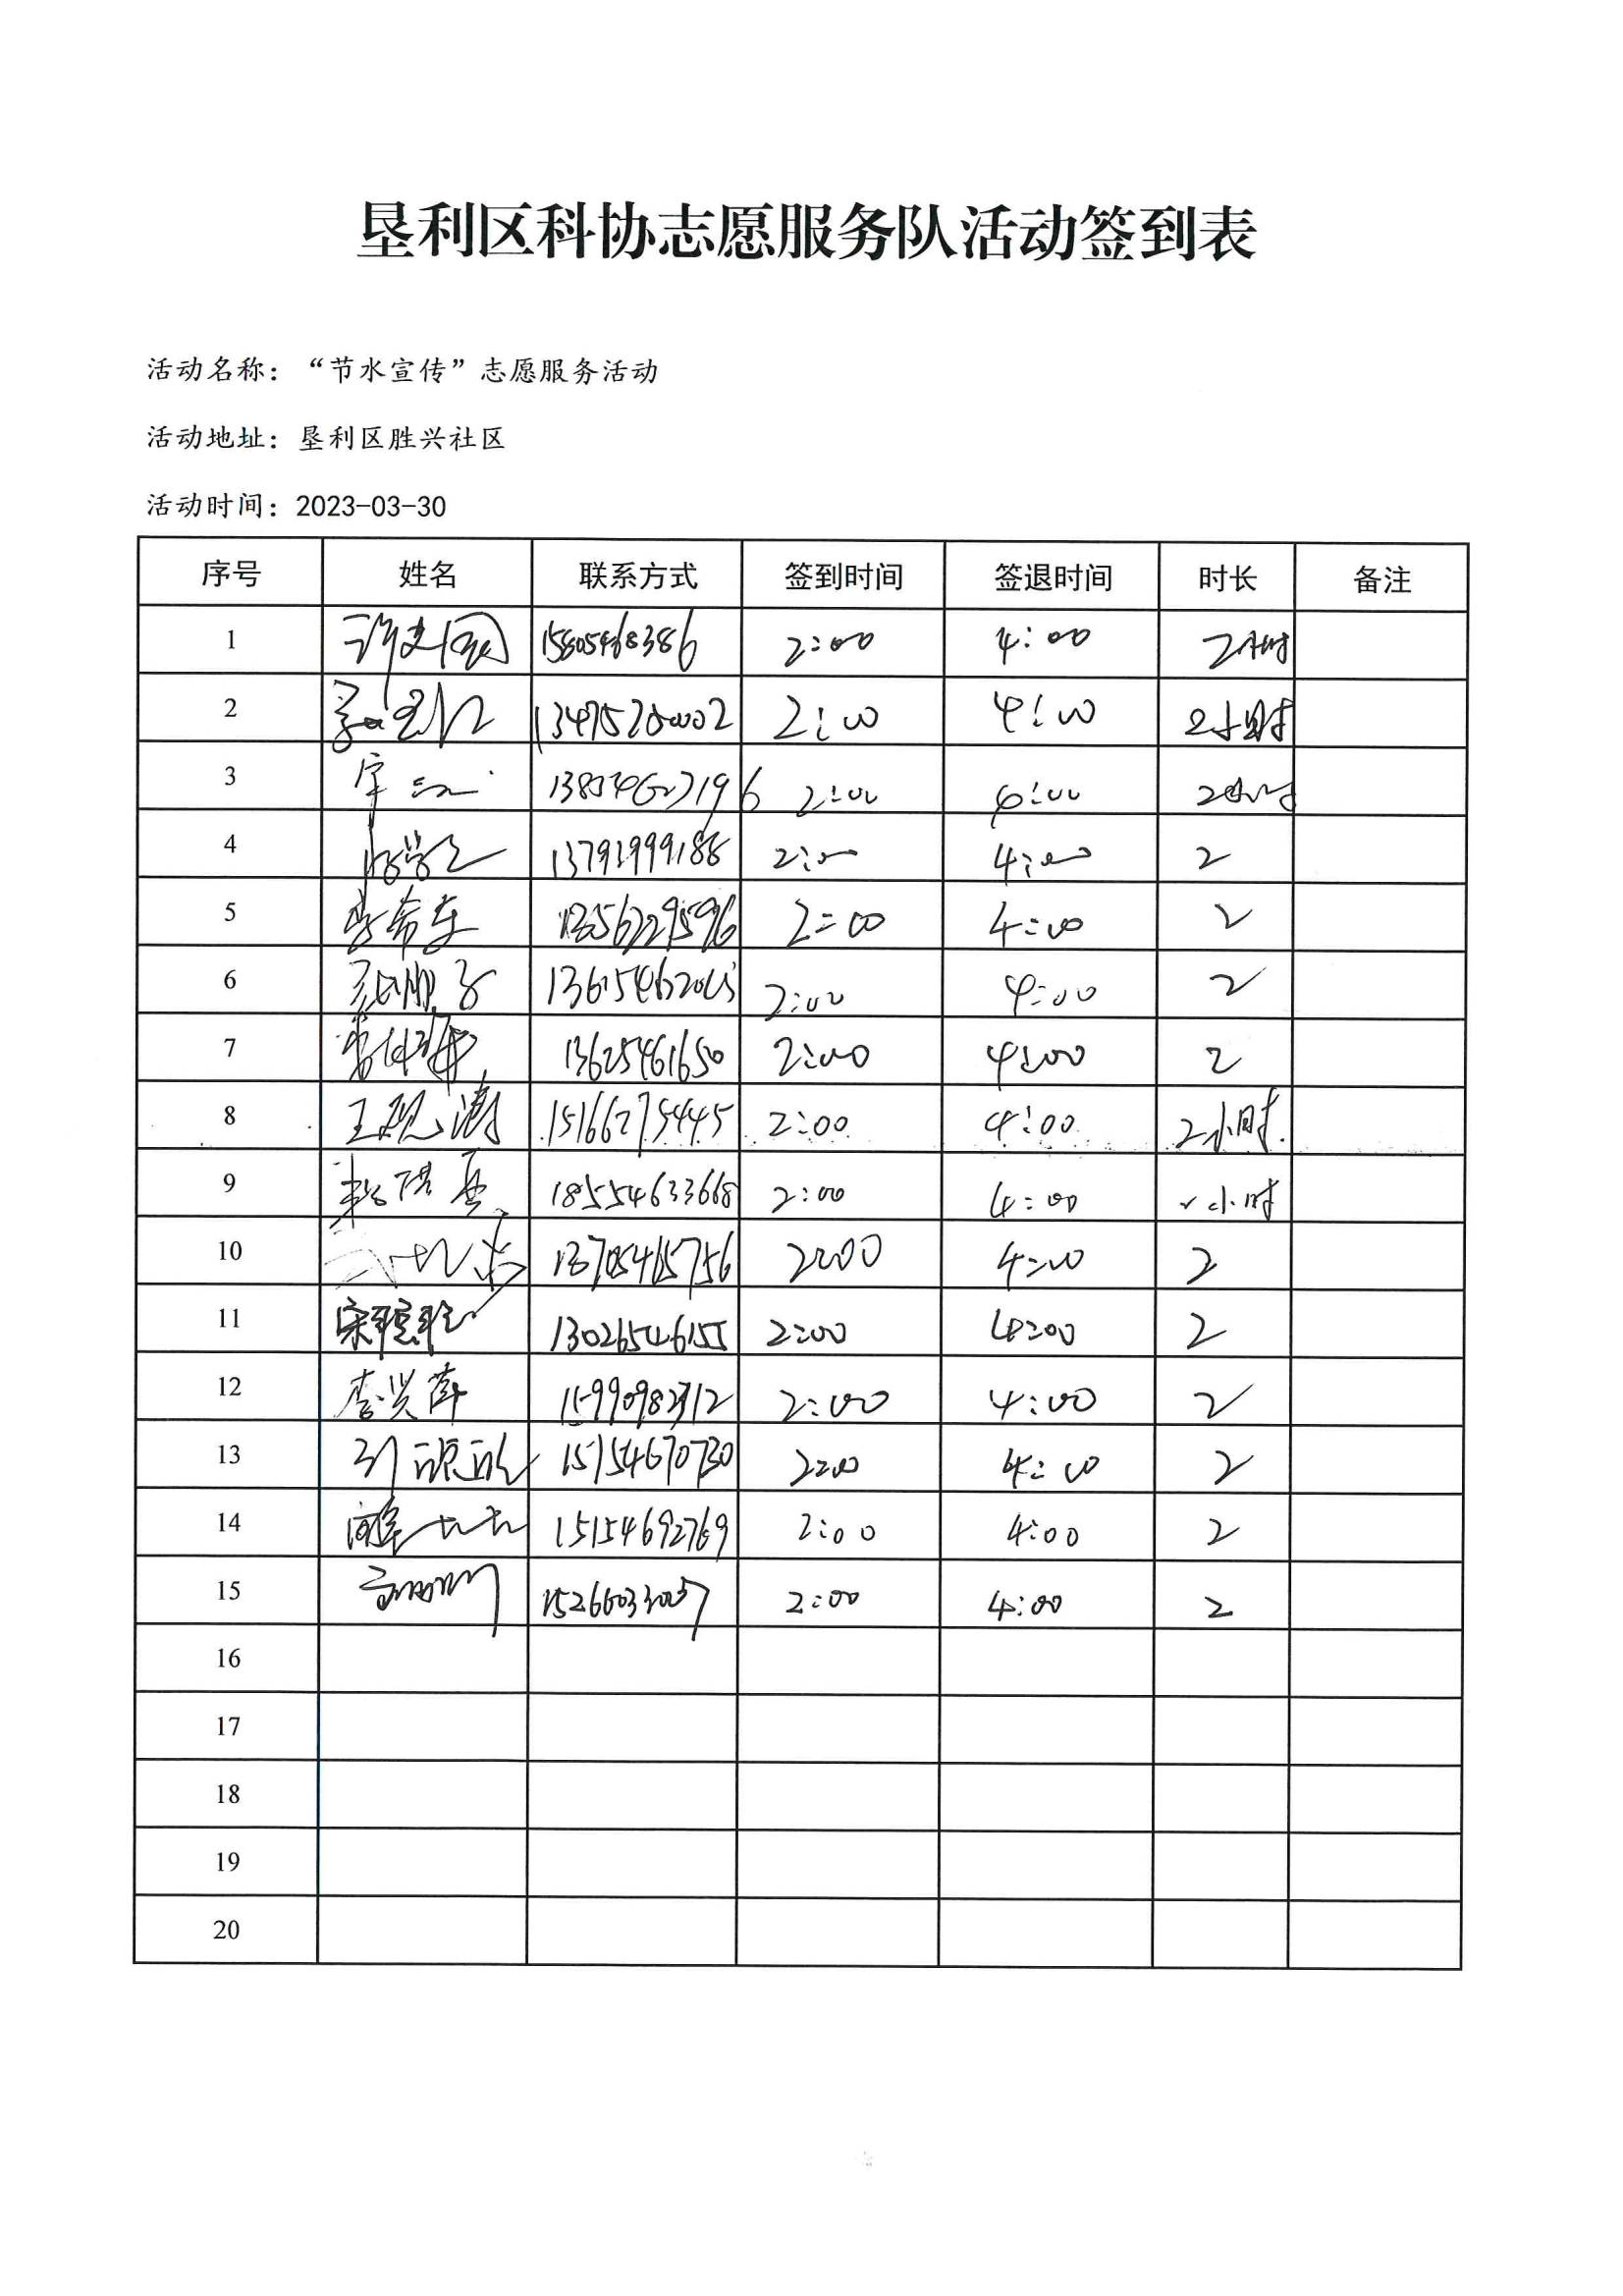 垦利区科协志愿服务队活动签到表
活动名称：“节水宣传”志愿服务活动
活动地址：垦利区胜兴社区
活动时间：2023-03-30
序号 姓名 联系方式 签到时间 签退时间 时长 备注
1 15805468386 2:00 4:00 2小时
2 2:00 4:00 2小时
3 2:00 4:00 2小时
4 13791999188 2:00 4:00 2
5 李希东 2:00 4:00 2
6 2:00 4:00 2
7 13625461650 2:00 4:00 2
8 15166275445 2:00 4:00 2小时
9 18554633668 2:00 4:00 2小时
10 13705465756 2:00 4:00 2
11 13026546155 2:00 4:00 2
12 李兴萍 2:00 4:00 2
13 15154670730 2:00 4:00 2
14 15154692769 2:00 4:00 2
15 2:00 4:00 2
16
17
18
19
20